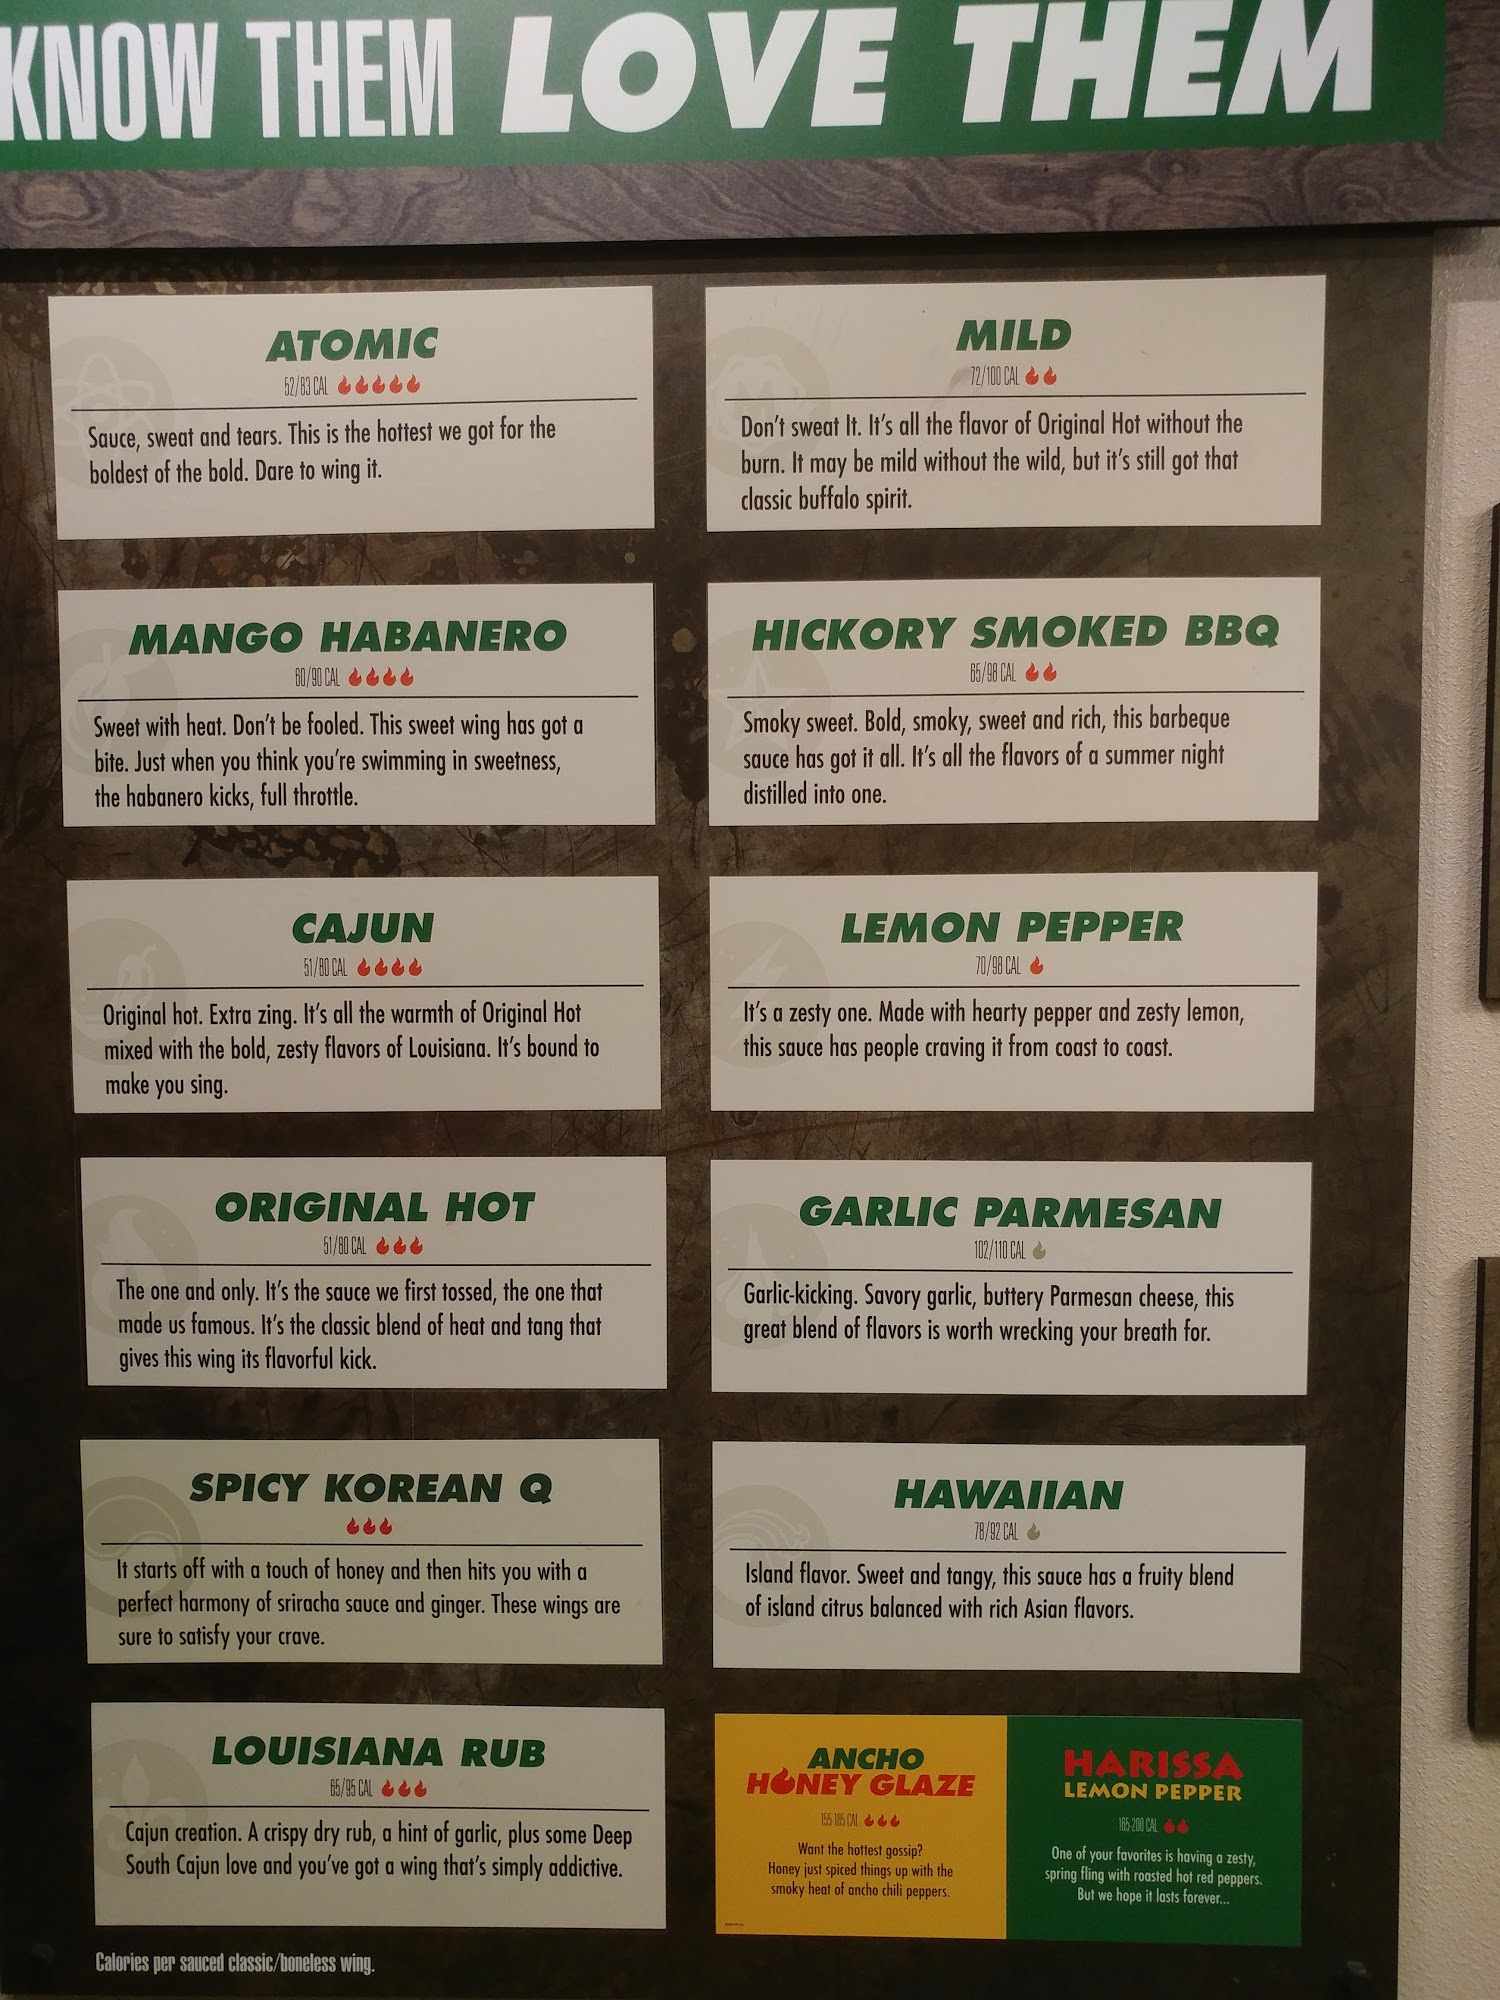 KNOW THEM LOVE THEM
ATOMIC
52/83 CAL
Sauce, sweat and tears. This is the hottest we got for the
boldest of the bold. Dare to wing it.
MANGO HABANERO
60/90 CAL
Sweet with heat. Don't be fooled. This sweet wing has got a
bite. Just when you think you're swimming in sweetness,
the habanero kicks, full throttle.
CAJUN
51/80 CAL
Original hot. Extra zing. It's all the warmth of Original Hot
mixed with the bold, zesty flavors of Louisiana. It's bound to
make you sing.
ORIGINAL HOT
51/80 CAL
The one and only. It's the sauce we first tossed, the one that
made us famous. It's the classic blend of heat and tang that
gives this wing its flavorful kick.
SPICY KOREAN Q
It starts off with a touch of honey and then hits you with a
perfect harmony of sriracha sauce and ginger. These wings are
sure to satisfy your crave.
LOUISIANA RUB
65/95 CAL
Cajun creation. A crispy dry rub, a hint of garlic, plus some Deep
South Cajun love and you've got a wing that's simply addictive.
MILD
72/100 CAL
Don't sweat It. It's all the flavor of Original Hot without the
burn. It may be mild without the wild, but it's still got that
classic buffalo spirit.
HICKORY SMOKED BBQ
65/98 CAL
Smoky sweet. Bold, smoky, sweet and rich, this barbeque
sauce has got it all. It's all the flavors of a summer night
distilled into one.
LEMON PEPPER
70/98 CAL
It's a zesty one. Made with hearty pepper and zesty lemon,
this sauce has people craving it from coast to coast.
GARLIC PARMESAN
102/110 CAL
Garlic-kicking. Savory garlic, buttery Parmesan cheese, this
great blend of flavors is worth wrecking your breath for.
HAWAIIAN
78/92 CAL
Island flavor. Sweet and tangy, this sauce has a fruity blend
of island citrus balanced with rich Asian flavors.
ANCHO
HONEY GLAZE
155-185 CAL
Want the hottest gossip?
Honey just spiced things up with the
smoky heat of ancho chili peppers.
HARISSA
LEMON PEPPER
165-200 CAL
One of your favorites is having a zesty,
spring fling with roasted hot red peppers.
But we hope it lasts forever...
Calories per sauced classic/boneless wing.